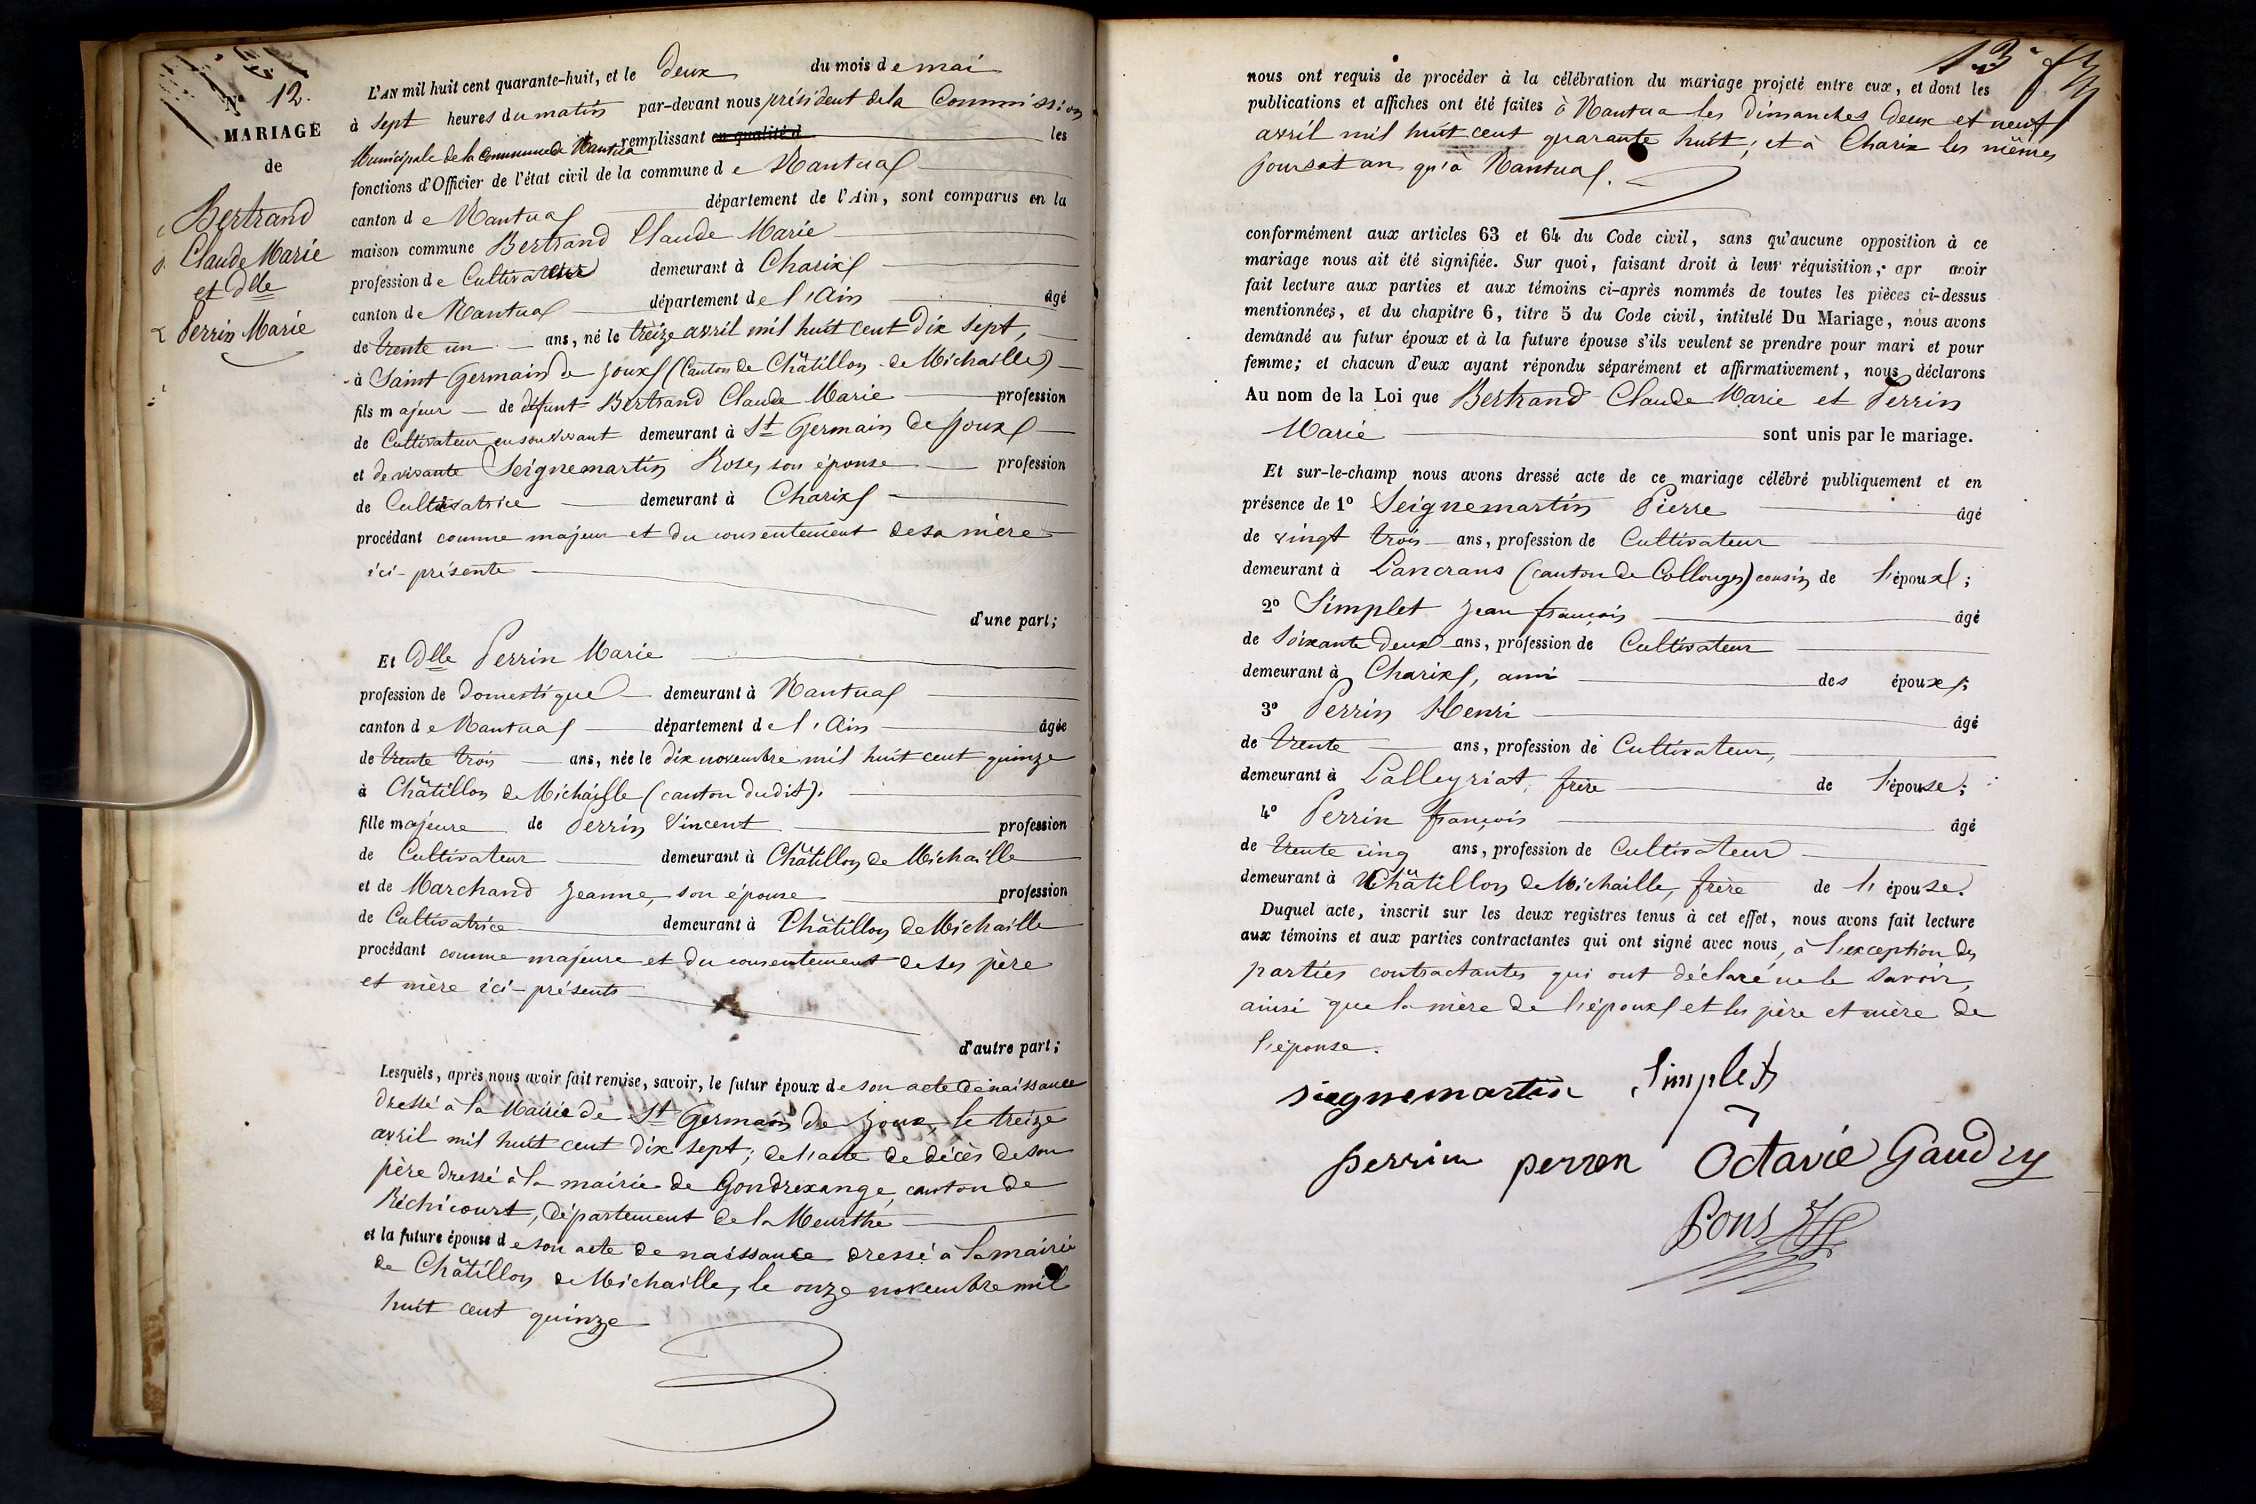 N° 12.
MARIAGE
de
Bertrand
Claude Marie
et dlle
Perrin Marie
L'AN mil huit cent quarante-huit, et le deux du mois de mai
à sept heures du matin par-devant nous président de la Commission
Municipale de la Commune de Nantua remplissant en qualité d les
fonctions d'Officier de l'état civil de la commune de Nantua
canton de Nantua département de l'Ain, sont comparus en la
maison commune Bertrand Claude Marie
profession de Cultivateur demeurant à Charix
canton de Nantua département de l'Ain âgé
de trente un ans, né le treize avril mil huit cent dix sept,
à Saint Germain de Joux (Canton de Châtillon de Michaille)
fils majeur de défunt Bertrand Claude Marie profession
de Cultivateur en son vivant demeurant à St Germain de Joux
et de vivante Seignemartin Rose, son épouse profession
de Cultivatrice demeurant à Charix
procédant comme majeur et du consentement de sa mère
ici-présente
d'une part;
Et Dlle Perrin Marie
profession de domestique demeurant à Nantua
canton de Nantua département de l'Ain âgée
de trente trois ans, née le dix novembre mil huit cent quinze
à Châtillon de Michaille (canton dudit).
fille majeure de Perrin Vincent profession
de Cultivateur demeurant à Châtillon de Michaille
et de Marchand Jeanne, son épouse profession
de Cultivatrice demeurant à Châtillon de Michaille
procédant comme majeure et du consentement de ses père
et mère ici-présents
d'autre part;
Lesquels, après nous avoir fait remise, savoir, le futur époux de son acte de naissance
dressé à la Mairie de St Germain de Joux, le treize
avril mil huit cent dix sept; de l'acte de décès de son
père dressé à la mairie de Gondrexange, canton de
Réchicourt, département de la Meurthe
et la future épouse de son acte de naissance dressé à la mairie
de Châtillon de Michaille, le onze novembre mil
huit cent quinze
13
nous ont requis de procéder à la célébration du mariage projeté entre eux, et dont les
publications et affiches ont été faites à Nantua les dimanches deux et neuf
avril mil huit cent quarante huit; et à Charix les mêmes
jours et an qu'à Nantua.
conformément aux articles 63 et 64 du Code civil, sans qu'aucune opposition à ce
mariage nous ait été signifiée. Sur quoi, faisant droit à leur réquisition, apr avoir
fait lecture aux parties et aux témoins ci-après nommés de toutes les pièces ci-dessus
mentionnées, et du chapitre 6, titre 5 du Code civil, intitulé Du Mariage, nous avons
demandé au futur époux et à la future épouse s'ils veulent se prendre pour mari et pour
femme; et chacun d'eux ayant répondu séparément et affirmativement, nous déclarons
Au nom de la Loi que Bertrand Claude Marie et Perrin
Marie sont unis par le mariage.
Et sur-le-champ nous avons dressé acte de ce mariage célébré publiquement et en
présence de 1° Seignemartin Pierre âgé
de vingt trois ans, profession de Cultivateur
demeurant à Lancrans (canton de Collonges) cousin de l'époux;
2° Simplet Jean François âgé
de soixante deux ans, profession de Cultivateur
demeurant à Charix, ami des époux;
3° Perrin Henri âgé
de trente ans, profession de Cultivateur,
demeurant à Lalleyriat, frère de l'épouse;
4° Perrin François âgé
de trente cinq ans, profession de Cultivateur
demeurant à Châtillon de Michaille, frère de l'épouse.
Duquel acte, inscrit sur les deux registres tenus à cet effet, nous avons fait lecture
aux témoins et aux parties contractantes qui ont signé avec nous, à l'exception des
parties contractantes qui ont déclaré ne le savoir,
ainsi que la mère de l'époux et les père et mère de
l'épouse.
siegnemartin Simplet
perrin perron Octavie Gaudry
Pons